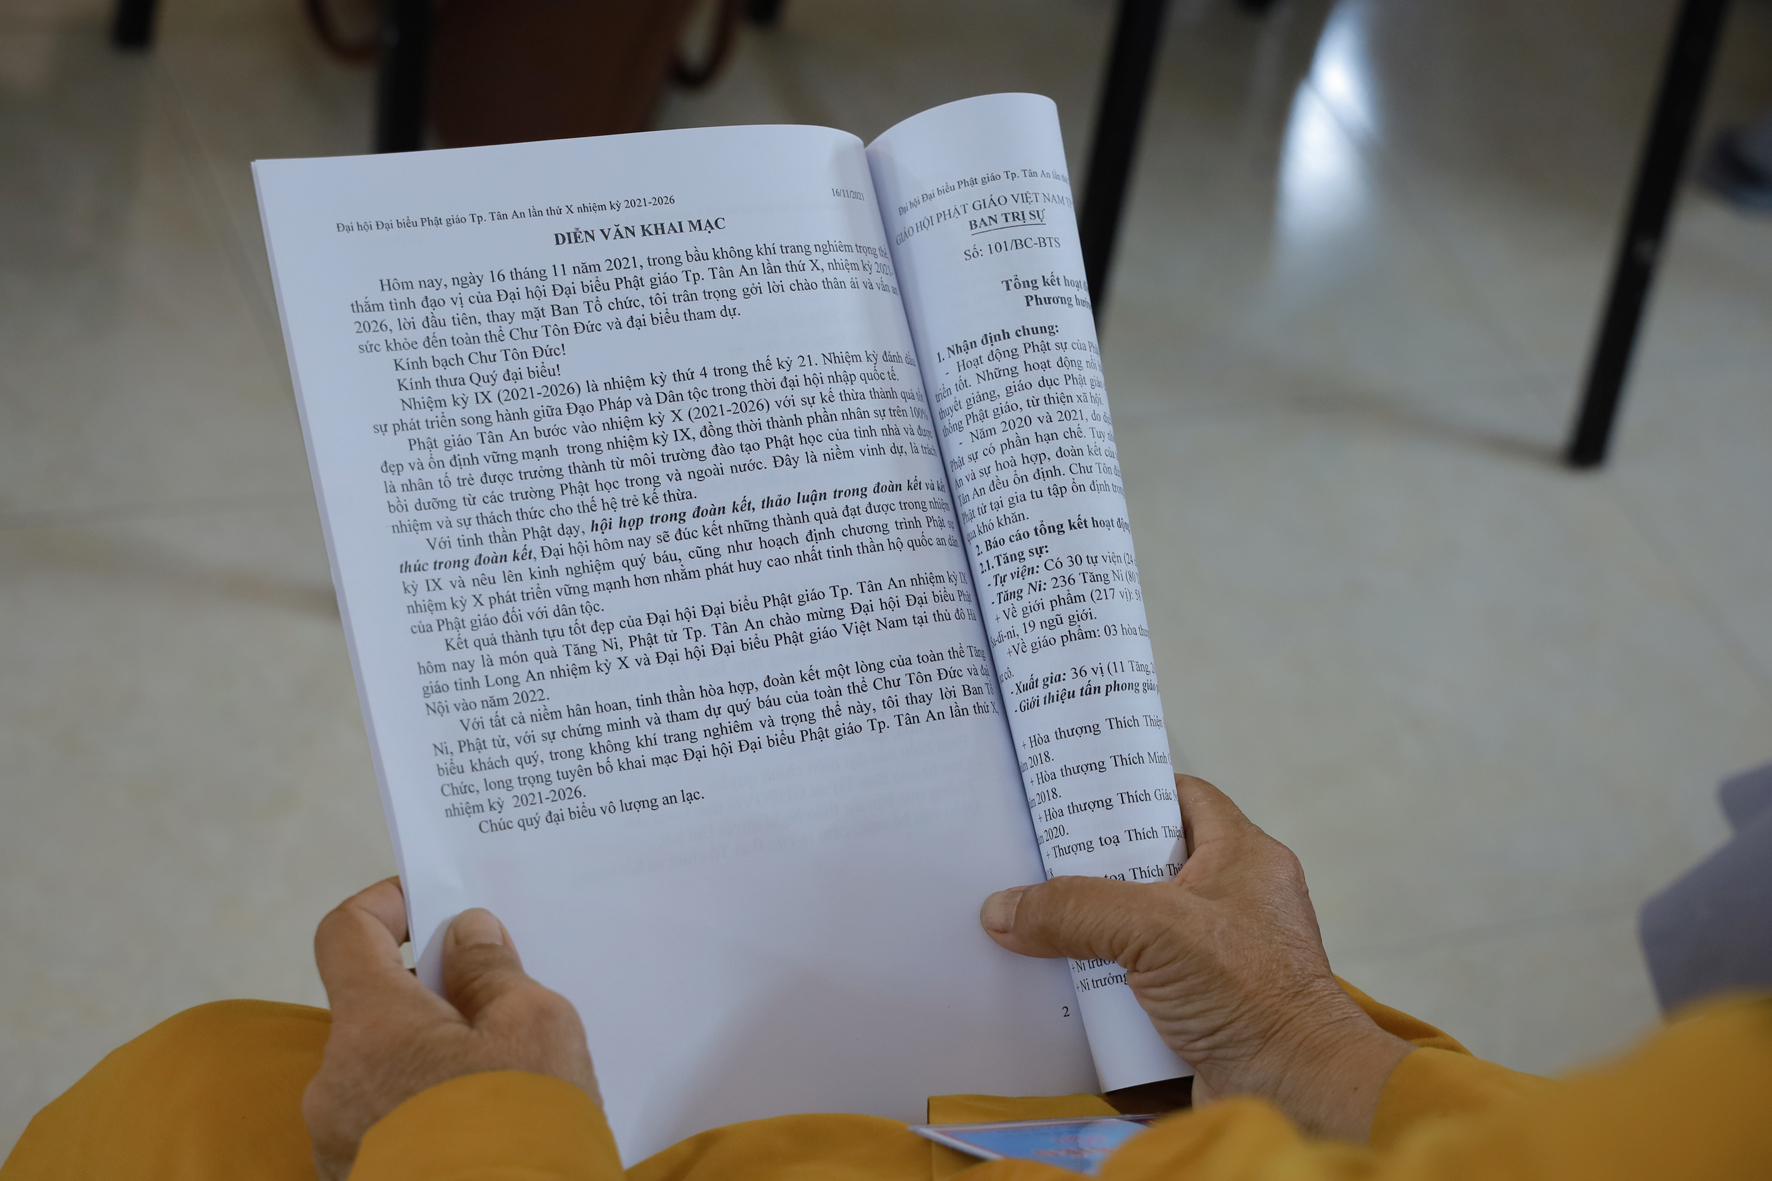 Đại hội Đại biểu Phật giáo Tp. Tân An lần thứ X nhiệm kỳ 2021-2026
16/11/2021
DIỄN VĂN KHAI MẠC
Hôm nay, ngày 16 tháng 11 năm 2021, trong bầu không khí trang nghiêm trọng thể,
thắm tình đạo vị của Đại hội Đại biểu Phật giáo Tp. Tân An lần thứ X, nhiệm kỳ 2021-
2026, lời đầu tiên, thay mặt Ban Tổ chức, tôi trân trọng gởi lời chào thân ái và vấn an
sức khỏe đến toàn thể Chư Tôn Đức và đại biểu tham dự.
Kính bạch Chư Tôn Đức!
Kính thưa Quý đại biểu!
Nhiệm kỳ IX (2021-2026) là nhiệm kỳ thứ 4 trong thế kỷ 21. Nhiệm kỳ đánh dấu
sự phát triển song hành giữa Đạo Pháp và Dân tộc trong thời đại hội nhập quốc tế.
Phật giáo Tân An bước vào nhiệm kỳ X (2021-2026) với sự kế thừa thành quả tốt
đẹp và ổn định vững mạnh trong nhiệm kỳ IX, đồng thời thành phần nhân sự trên 100%
là nhân tố trẻ được trưởng thành từ môi trường đào tạo Phật học của tỉnh nhà và được
bồi dưỡng từ các trường Phật học trong và ngoài nước. Đây là niềm vinh dự, là trách
nhiệm và sự thách thức cho thế hệ trẻ kế thừa.
Với tinh thần Phật dạy, hội họp trong đoàn kết, thảo luận trong đoàn kết và kết
thúc trong đoàn kết, Đại hội hôm nay sẽ đúc kết những thành quả đạt được trong nhiệm
kỳ IX và nêu lên kinh nghiệm quý báu, cũng như hoạch định chương trình Phật sự
nhiệm kỳ X phát triển vững mạnh hơn nhằm phát huy cao nhất tinh thần hộ quốc an dân
của Phật giáo đối với dân tộc.
Kết quả thành tựu tốt đẹp của Đại hội Đại biểu Phật giáo Tp. Tân An nhiệm kỳ IX
hôm nay là món quà Tăng Ni, Phật tử Tp. Tân An chào mừng Đại hội Đại biểu Phật
giáo tỉnh Long An nhiệm kỳ X và Đại hội Đại biểu Phật giáo Việt Nam tại thủ đô Hà
Nội vào năm 2022.
Với tất cả niềm hân hoan, tinh thần hòa hợp, đoàn kết một lòng của toàn thể Tăng
Ni, Phật tử, với sự chứng minh và tham dự quý báu của toàn thể Chư Tôn Đức và đại
biểu khách quý, trong không khí trang nghiêm và trọng thể này, tôi thay lời Ban Tổ
Chức, long trọng tuyên bố khai mạc Đại hội Đại biểu Phật giáo Tp. Tân An lần thứ X,
nhiệm kỳ 2021-2026.
Chúc quý đại biểu vô lượng an lạc.
2
Đại hội Đại biểu Phật giáo Tp. Tân An lần
GIÁO HỘI PHẬT GIÁO VIỆT NAM
BAN TRỊ SỰ
Số: 101/BC-BTS
Tổng kết hoạt
Phương hướng
1. Nhận định chung:
- Hoạt động Phật sự của
triển tốt. Những hoạt động
thuyết giảng, giáo dục Phật giáo
thống Phật giáo, từ thiện xã hội.
- Năm 2020 và 2021, do
Phật sự có phần hạn chế. Tuy
An và sự hoà hợp, đoàn kết của
Tân An đều ổn định. Chư Tôn
Phật tử tại gia tu tập ổn định trong
qua khó khăn.
2. Báo cáo tổng kết hoạt động
2.1. Tăng sự:
- Tự viện: Có 30 tự viện (24
- Tăng Ni: 236 Tăng Ni (80
+ Về giới phẩm (217 vị):
19 ngũ giới.
+Về giáo phẩm: 03 hòa thượng
cô.
- Xuất gia: 36 vị (11 Tăng,
- Giới thiệu tấn phong giáo
+ Hòa thượng Thích Thiện
2018.
+ Hòa thượng Thích Minh
2018.
+ Hòa thượng Thích Giác
2020.
+ Thượng toạ Thích Thiện
toạ Thích
+ Ni trưởng
+ Ni trưởng